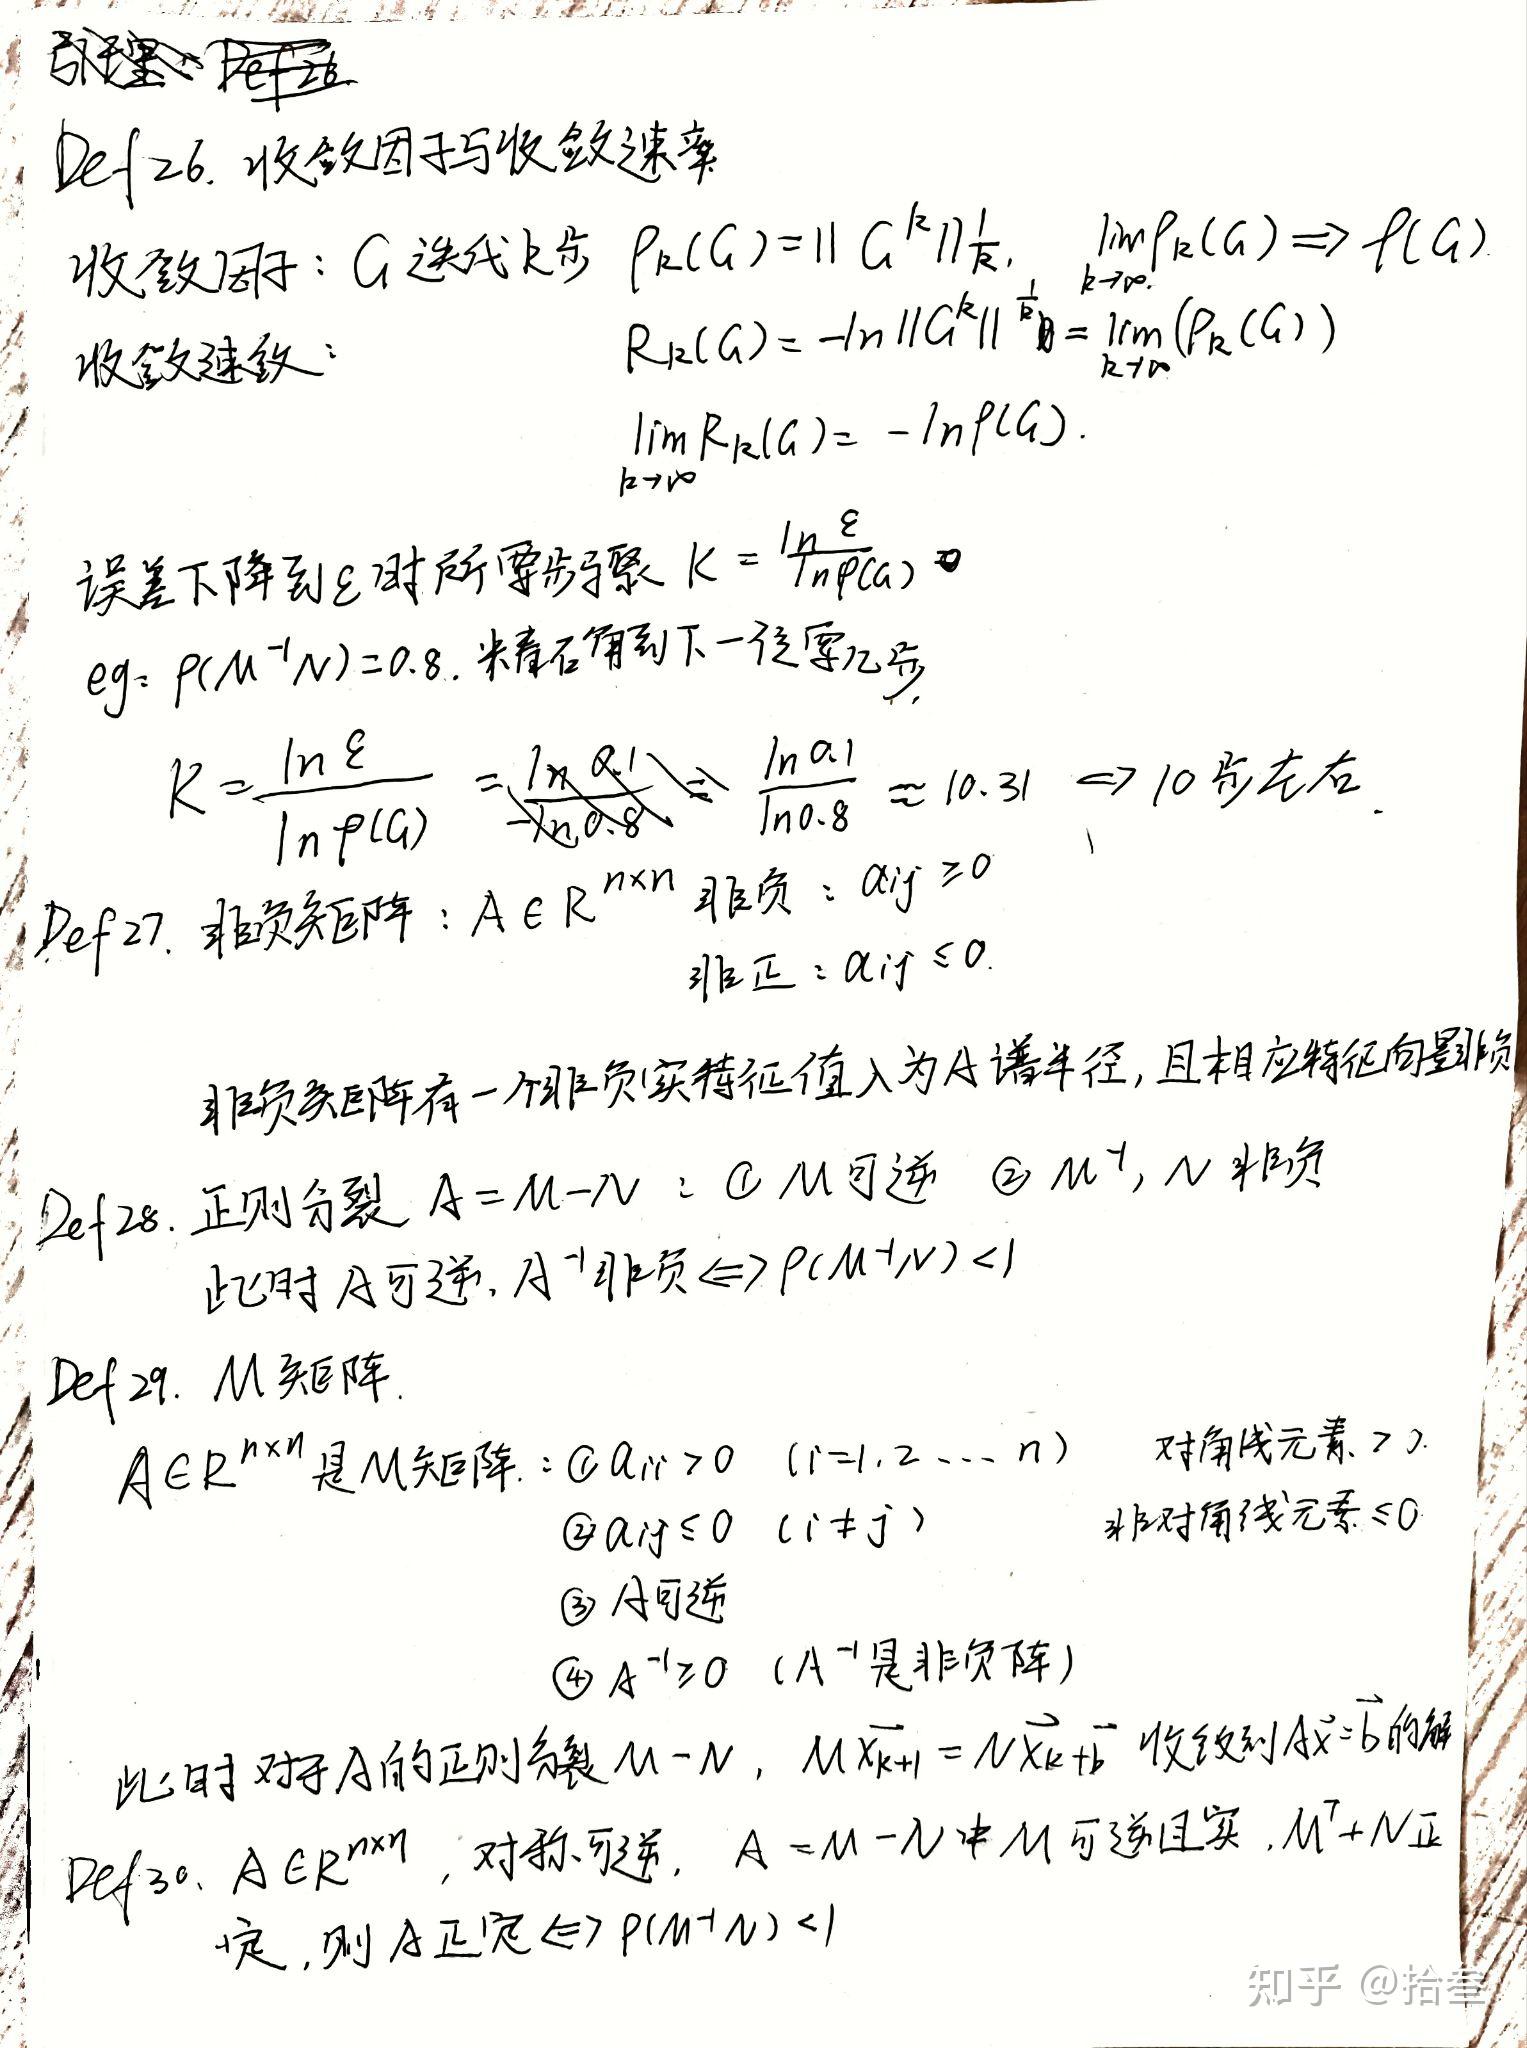 引理: Def26
Def 26. 收敛因子与收敛速率
收敛因子: G迭代k步 ρk(G)=||G^k||^(1/k), lim k→∞ ρk(G) ⇒ ρ(G).
收敛速致: Rk(G) = -ln||G^k||^(1/k) = lim k→∞ (ρk(G))
lim k→∞ Rk(G) = -lnρ(G).
误差下降到ε时所要步骤 K = lnε / lnρ(G)
eg: ρ(M⁻¹N)=0.8. 米青石角到下一位要几步.
K = lnε / lnρ(G) = ln 0.1 / -ln 0.8 = ln 0.1 / ln 0.8 ≈ 10.31 ⇔ 10步左右.
Def 27. 非负矩阵: A∈R^(n×n) 非负: aij ≥0
非正: aij ≤0.
非负矩阵有一个非负实特征值λ为A谱半径, 且相应特征向量非负
Def 28. 正则分裂 A=M-N : ① M可逆 ② M⁻¹, N 非负
此时A可逆, A⁻¹非负 ⇔ ρ(M⁻¹N)<1
Def 29. M矩阵.
A∈R^(n×n) 是M矩阵: ① aii >0 (i=1,2…n) 对角线元素 >0.
② aij ≤0 (i≠j) 非对角线元素 ≤0
③ A可逆
④ A⁻¹≥0 (A⁻¹是非负阵)
此时对于A的正则分裂M-N, Mx⃗k+1 = Nx⃗k+b⃗ 收敛到Ax⃗=b⃗的解
Def 30. A∈R^(n×n), 对称可逆, A=M-N中M可逆且实, Mᵀ+N正
定, 则A正定 ⇔ ρ(M⁻¹N)<1
知乎 @拾叁